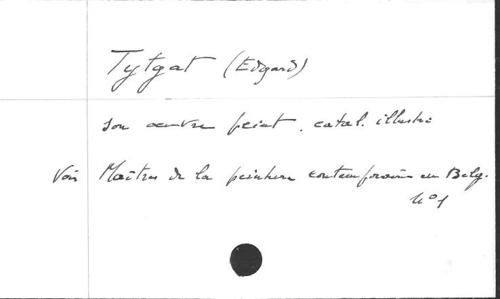 Tytgat (Edgard)
son oeuvre peint. catal. illustré
Voir Maîtres de la peinture contemporaine en Belg.
n°1